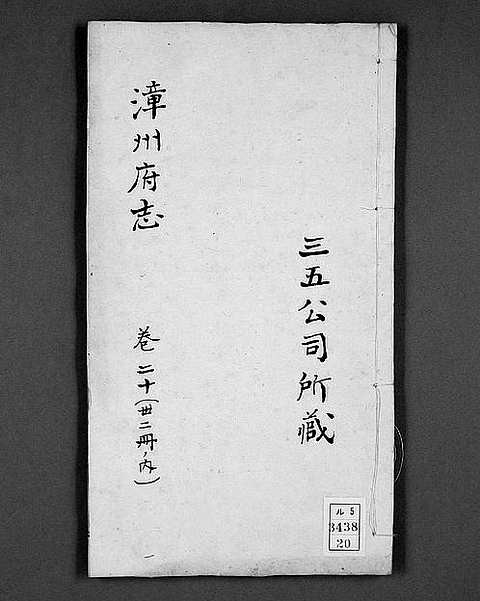 三五公司所藏
漳州府志
巻二十(丗二冊ノ内)
ル5
3438
20